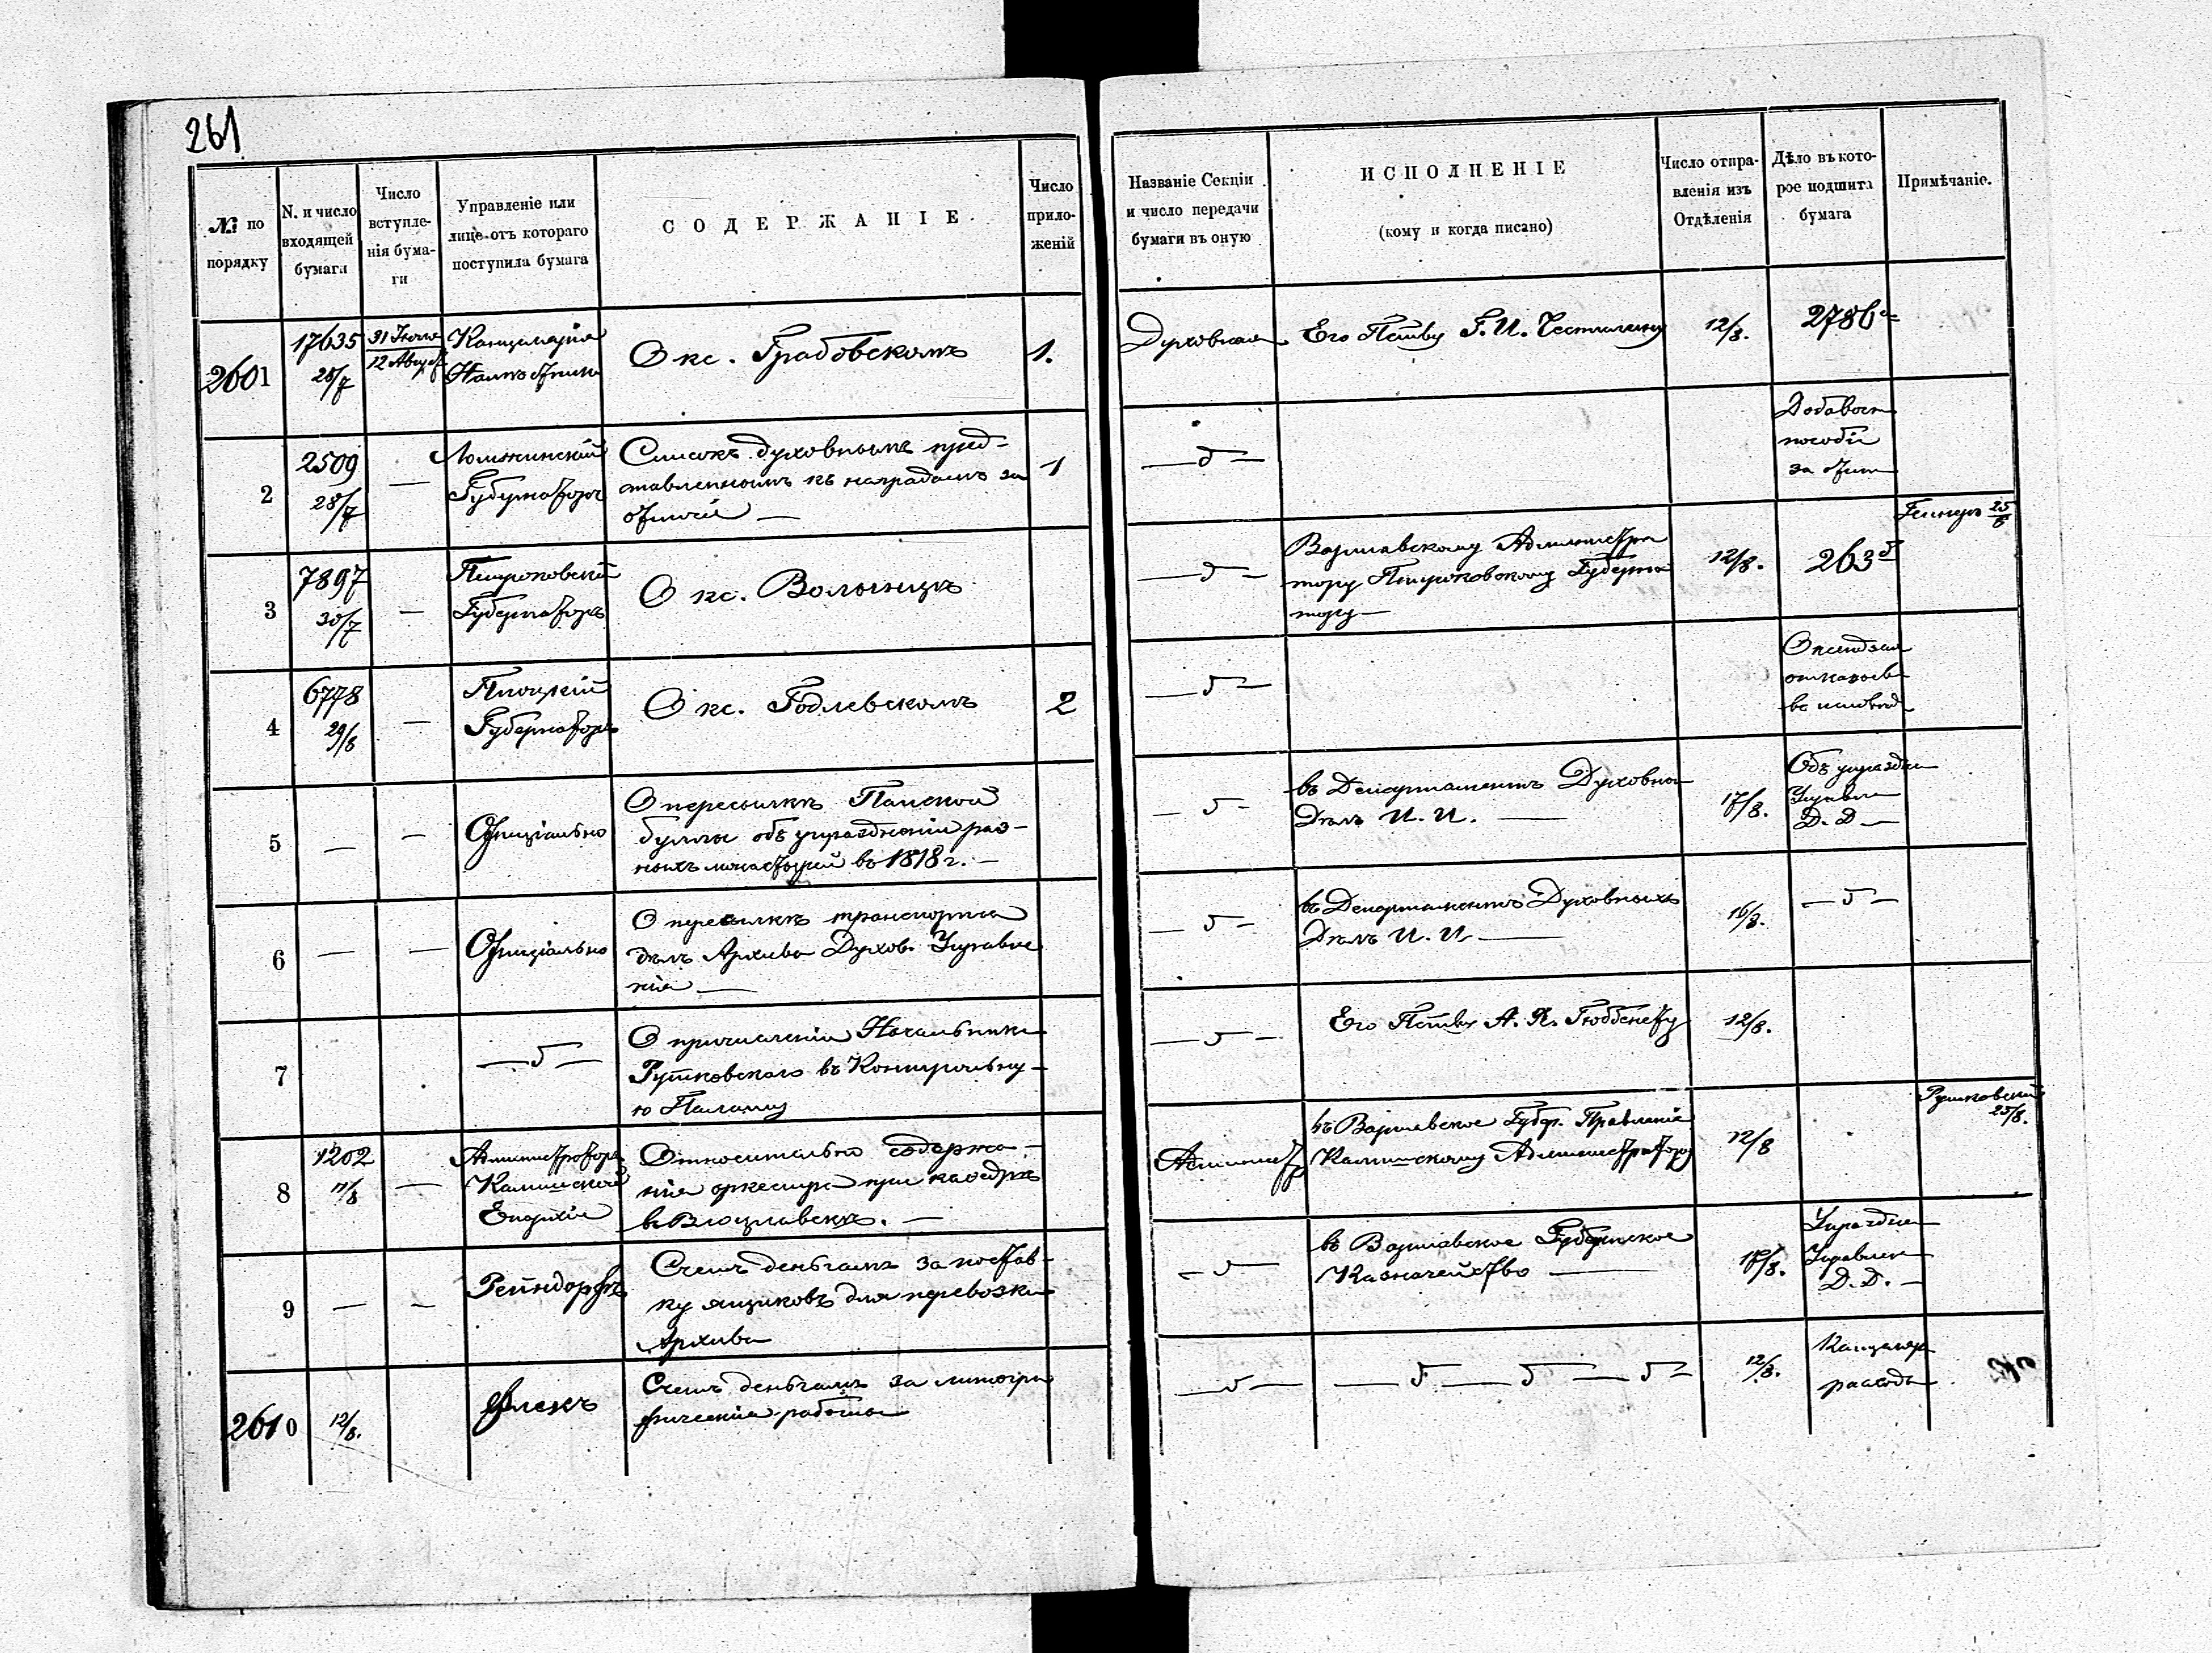 261
№ по
порядку
N. и число
входящей
бумаги
Число
вступле-
нія бума-
ги
Управленіе или
лице отъ котораго
поступила бумага
СОДЕРЖАНІЕ
Число
прило-
женій
Названіе Секціи
и число передачи
бумаги въ оную
ИСПОЛНЕНІЕ
(кому и когда писано)
Число отпра-
вленія изъ
Отдѣленія
Дѣло въ кото-
рое подшита
бумага
Примѣчаніе.
2601
17635
28/7
31 Іюля
12 Август
Канцелярія
Намѣстника
О кс. Грабовскомъ
1.
Духовная
Его Пств
12/8.
2786
2
2509
28/7
—
Ломжинскій
Губернаторъ
Списокъ духовнымъ пред-
ставленнымъ къ наградамъ за
отличіе —
1
— д —
Добавоч
пособі
за отли
3
7897
30/7
—
Петроковскій
Губернаторъ
О кс. Волынцѣ
— д —
Варшавскому Администра
тору Петроковскому Губерна
тору —
12/8.
263
25
4
6778
29/8
—
Плоцкій
Губернаторъ
О кс. Годлевскомъ
2
— д —
О ксендзах
5
—
—
Офиціально
О пересылкѣ Папской
буллы объ упраздненіи раз-
ныхъ монастырей въ 1818 г. —
— д —
въ Департаментъ Духовных
Дѣлъ И. И. —
17/8.
Объ упраздн
Управле
Д. Д —
6
—
—
Офиціально
О пересылкѣ транспорта
дѣлъ Архива Духов. Управле
нія —
— д —
въ Департаментъ Духовныхъ
Дѣлъ И. И. —
16/8.
— д —
7
— д —
О причисленіи Начальника
Рутковскаго въ Контрольну-
ю Палату
— д —
Его Пству А. Я. Гюббенету
12/8.
8
1202
11/8
—
Администраторъ
Калишской
Епархіи
Относительно содержа-
нія оркестра при каѳедрѣ
въ Влоцлавскѣ. —
Админист
въ Варшавское Губер. Правленіе
Калишскому Администратору
12/8
Рутковскій
25/8.
9
—
—
Рейндорфъ
Счетъ деньгамъ за постав-
ку ящиковъ для перевозки
Архива
— д —
въ Варшавское Губернское
Казначейство —
18/8.
Упраздне
Управлен
Д. Д. —
2610
12/8.
Флекъ
Счетъ деньгамъ за литогра
фическія работы
— д —
— д — д — д —
12/8.
Канцеляр
расходы